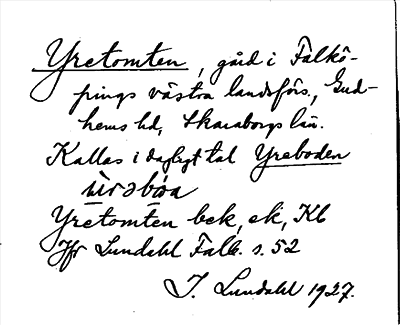 Yretomten, gård i Falkö-
pings västra landsförs., Gud-
hems hd, Skaraborgs län.
Kallas i dagligt tal Yreboden
ùrəbòa
Yretomten bck, ek, Kb
Jfr Lundahl Falb. s. 52
I. Lundahl 1927.